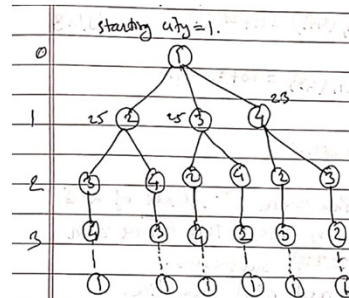 starting city=1.
0 1
1 25 2 25 3 4 23
2 3 4 2 4 2 3
3 4 3 4 2 3 2
1 1 1 1 1 1